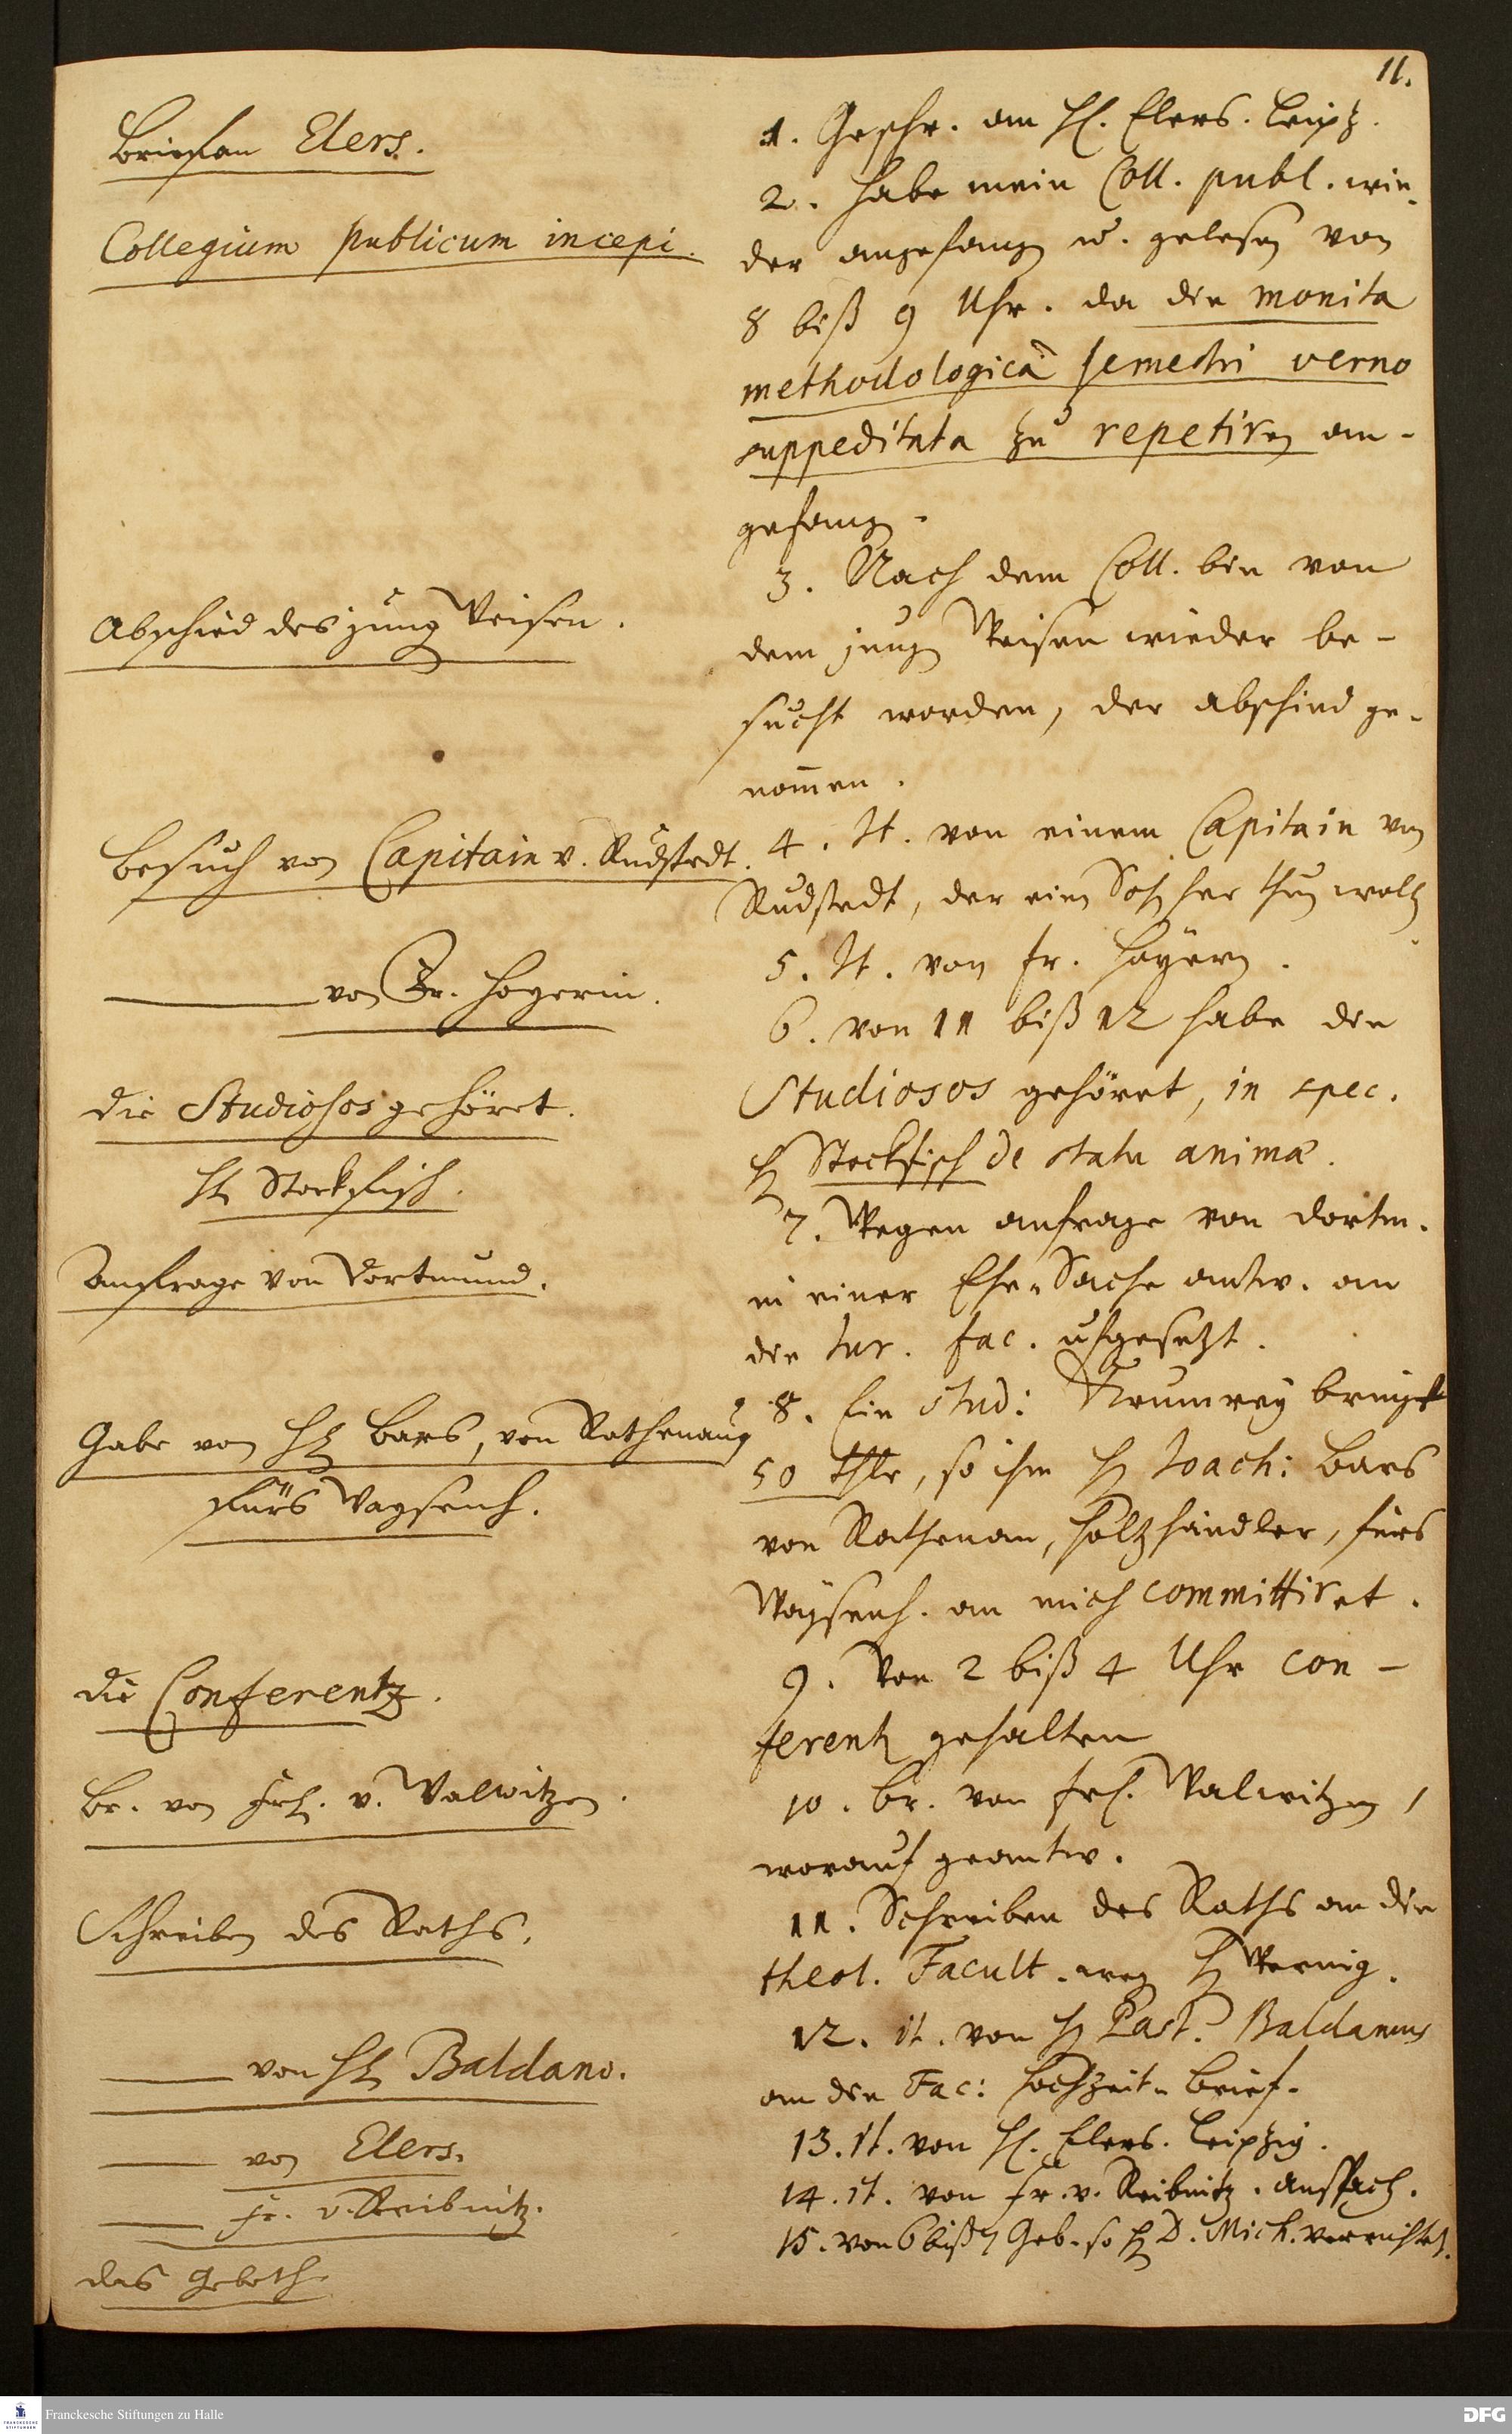 11.
Brief an Elers.
Collegium publicum incepi.
Abschied des jung Weisen.
Besuch von Capitain v. Rudstedt.
von Fr. Hoyerin.
die Studiosos gehöret.
H. Stockfisch.
Anfrage von Dortmund.
Gabe von H. Bars, von Rathenau
fürs Waysenh.
die Conferentz.
Br. von Frl. v. Walwitzen.
Schreiben des Raths.
von H. Baldano.
von Elers.
Fr. v. Reibnitz.
das Gebeth
1. Geschr. an H. Elers. Leipz.
2. Habe mein Coll. publ. wie-
der angefang u. gelesen von
8 biß 9 Uhr. da die monita
methodologica semestri verno
suppeditata zu repetiren an-
gefang.
3. Nach dem Coll. bin von
dem jung Weisen wieder be-
sucht worden, der abschied ge-
nommen.
4. It. von einem Capitain von
Rudstedt, der ein Sohn her thun woll
5. It. von Fr. Hoyern.
6. von 11 biß 12 habe die
Studiosos gehöret, in spec.
H Stockfisch de statu animæ.
7. Wegen anfrage von Dortm.
in einer Ehe-Sache antw. an
die Jur. Fac. ufgesetzt.
8. Ein Stud: Neumrey bringt
50 thlr, so ihm H Joach: Bars
von Rathenau, Holtzhändler, fürs
Waysenh. an mich committiret.
9. Von 2 biß 4 Uhr Con-
ferentz gehalten
10. Br. von Frl. Walwitzen,
worauf geantw.
11. Schreiben des Raths an die
theol. Facult. weg H Wernig.
12. it. von H Past. Baldamus
an die Fac: Hochzeit-Brief.
13. it. von H. Elers. Leipzig.
14. it. von Fr. v. Reibnitz. Anspach.
15. von 6 biß 7 Geb. so H D. Mich. verrichtet.
Franckesche Stiftungen zu Halle
DFG